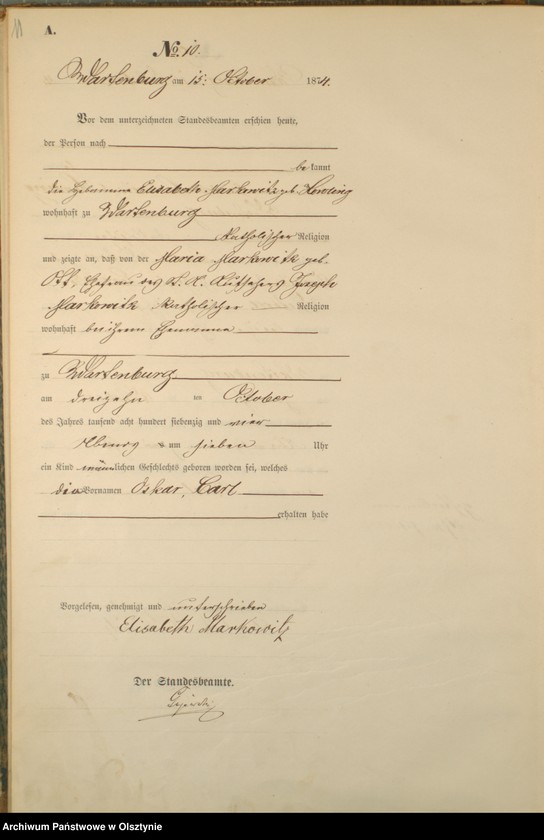 11
A.
No. 10.
Wartenburg am 15. October 1874.
Vor dem unterzeichneten Standesbeamten erschien heute,
der Person nach
bekannt
die Hebamme Elisabeth Markowitz geb.
wohnhaft zu Wartenburg
katholischer Religion
und zeigte an, daß von der Maria Markowitz geb.
Ott, Ehefrau des Joseph
Markowitz katholischer Religion
wohnhaft bei ihrem Ehemanne
zu Wartenburg
am dreizehn ten October
des Jahres tausend acht hundert siebenzig und vier
Abends um sieben Uhr
ein Kind männlichen Geschlechts geboren worden sei, welches
die Vornamen Oskar, Carl
erhalten habe
Vorgelesen, genehmigt und unterschrieben
Elisabeth Markowitz
Der Standesbeamte.
Archiwum Państwowe w Olsztynie